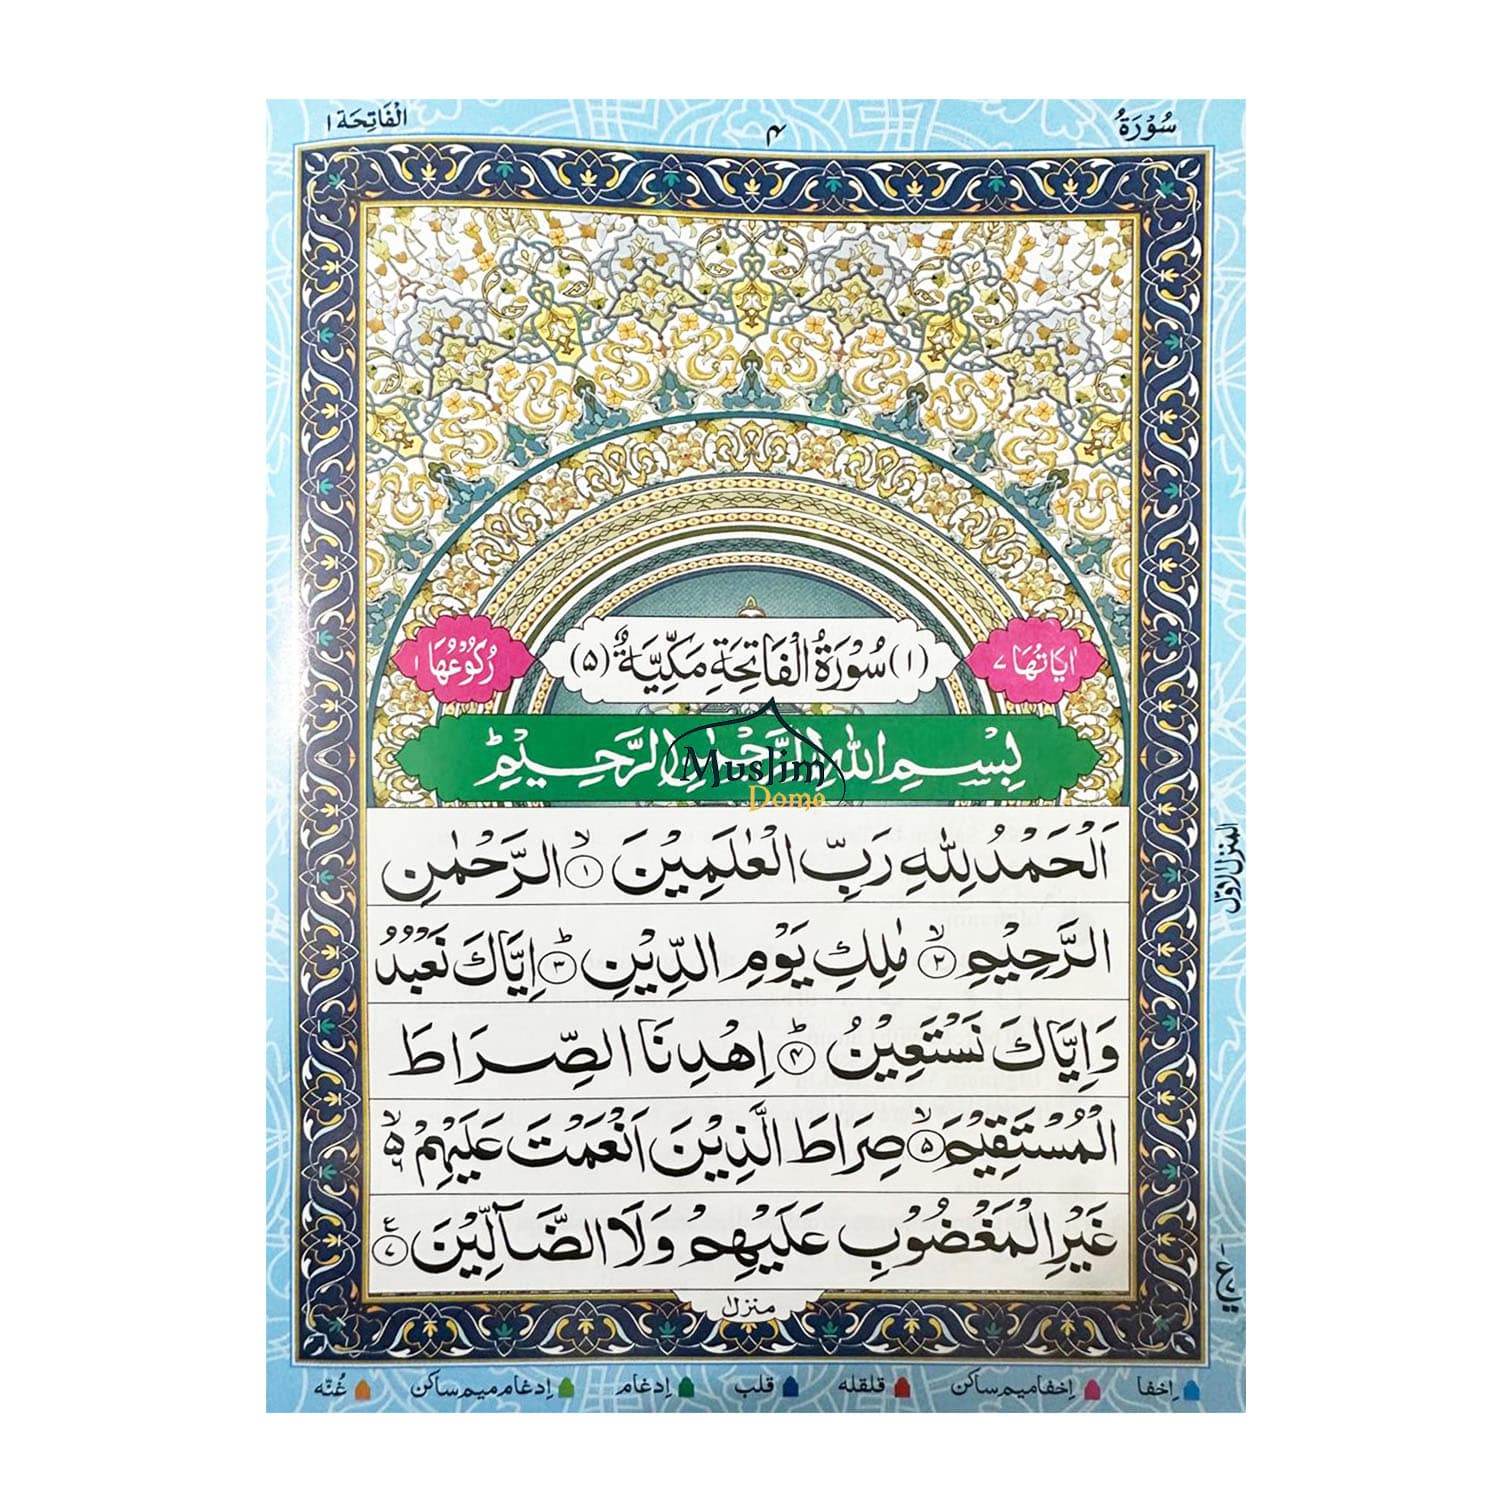 سُوْرَةُ ۴ الْفَاتِحَة ۱
اٰيَاتُهَا ۷ (۱) سُوْرَةُ الْفَاتِحَةِ مَكِّيَّةٌ (۵) رُكُوْعُهَا ۱
بِسْمِ اللّٰهِ الرَّحْمٰنِ الرَّحِيْمِ
Muslim
Dome
اَلْحَمْدُ لِلّٰهِ رَبِّ الْعٰلَمِيْنَ ۙ ۱ الرَّحْمٰنِ
الرَّحِيْمِ ۙ ۲ مٰلِكِ يَوْمِ الدِّيْنِ ؕ ۳ اِيَّاكَ نَعْبُدُ
وَاِيَّاكَ نَسْتَعِيْنُ ؕ ۴ اِهْدِنَا الصِّرَاطَ
الْمُسْتَقِيْمَ ۙ ۵ صِرَاطَ الَّذِيْنَ اَنْعَمْتَ عَلَيْهِمْ ۙ۵ ۶
غَيْرِ الْمَغْضُوْبِ عَلَيْهِمْ وَلَا الضَّآلِّيْنَ ع ۷
منزل ۱
المنزل الاوّل
اِخفا اِخفا میم ساکن قلقله قلب اِدغام اِدغام میم ساکن غُنّه